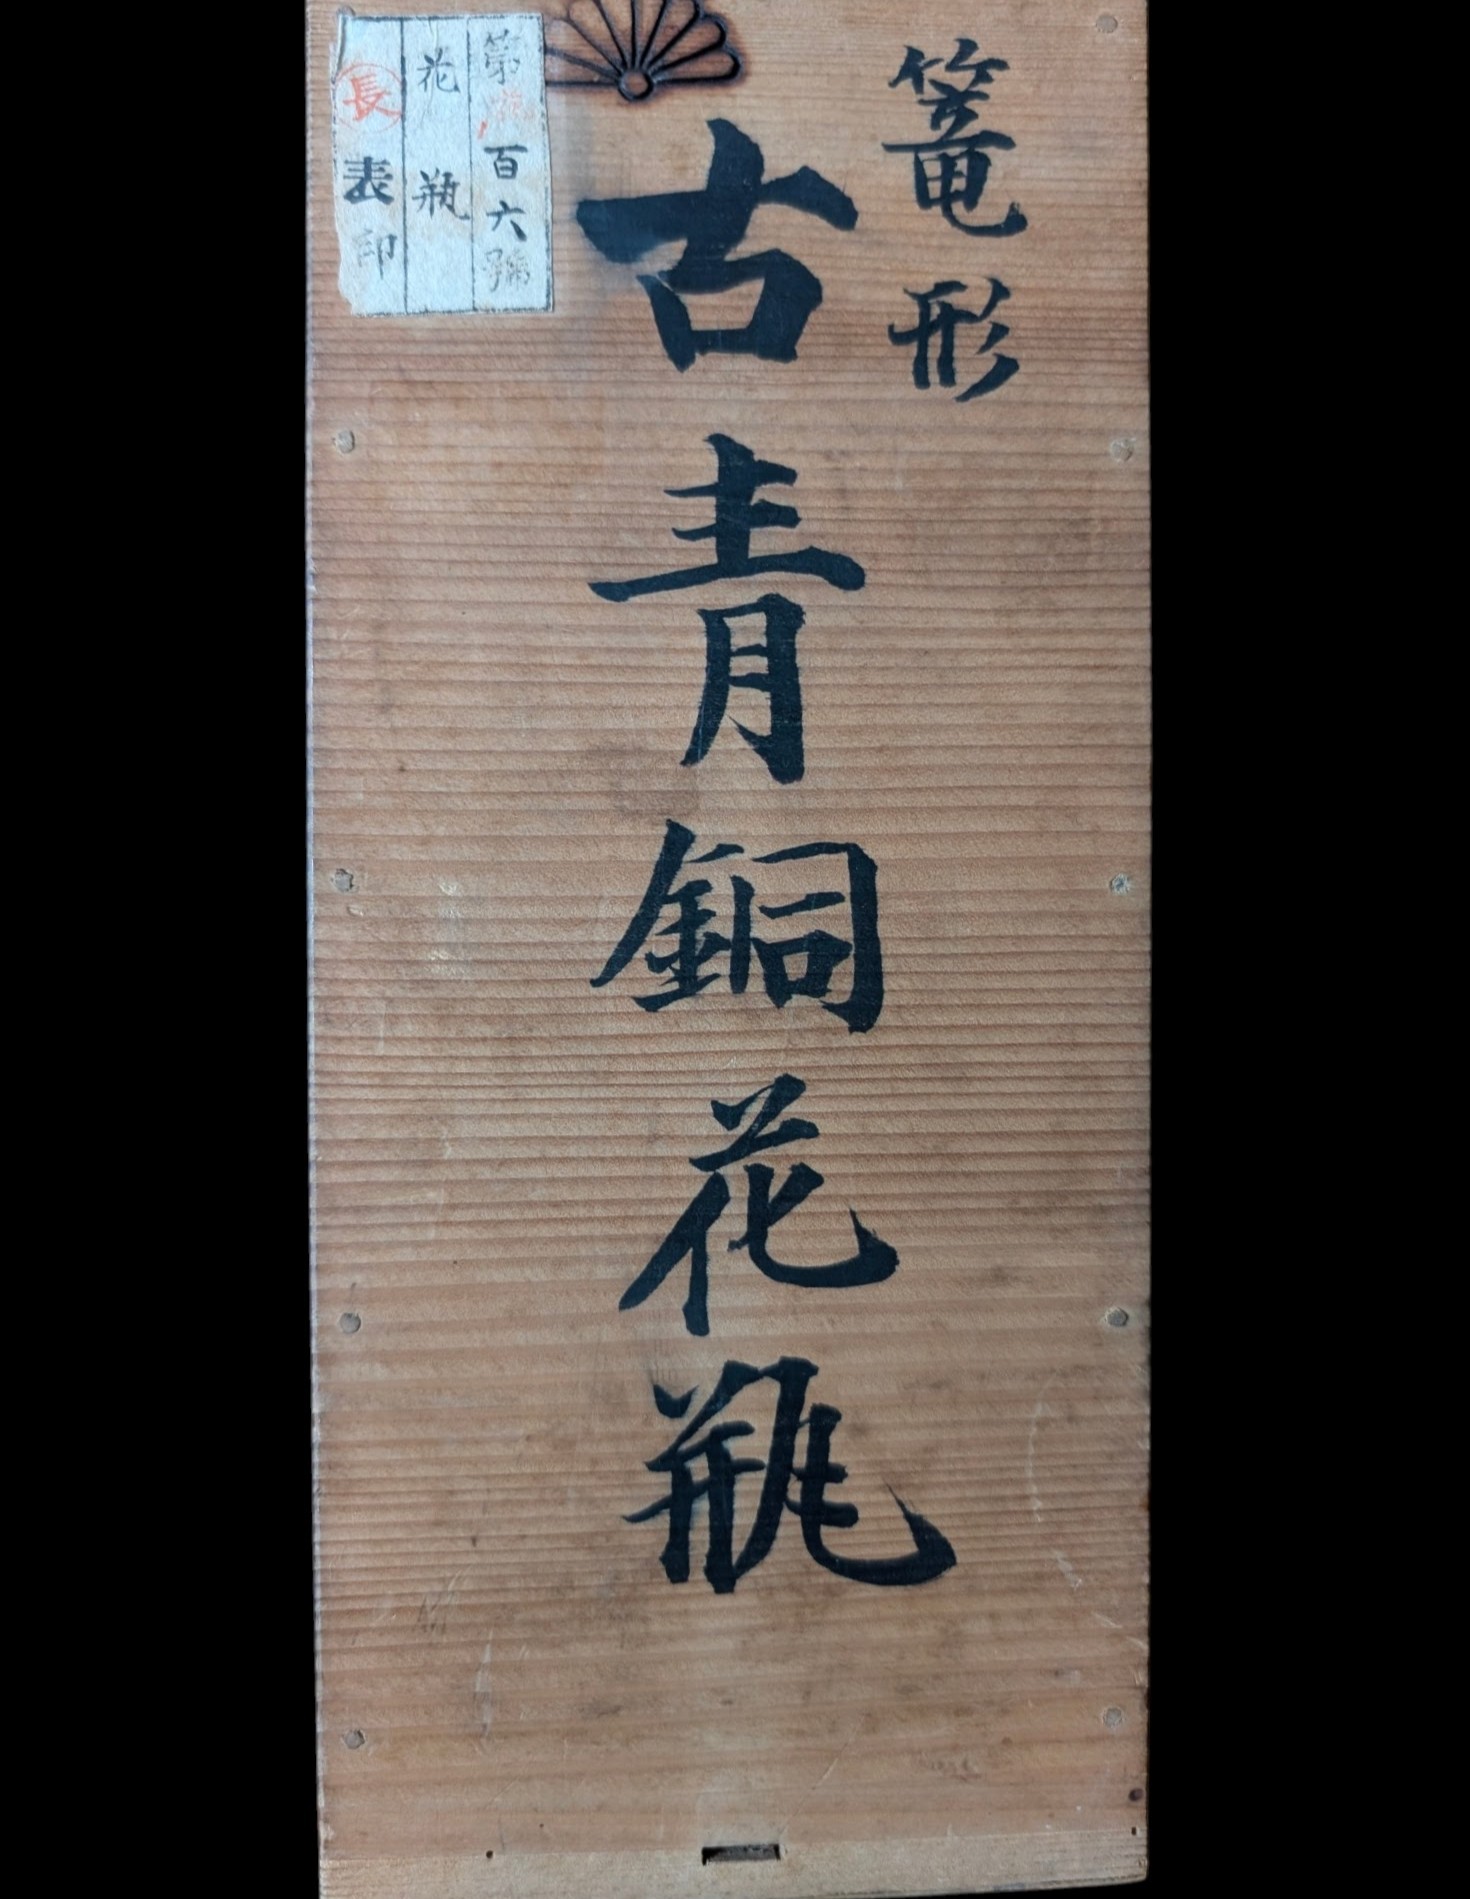 篭形
古青銅花瓶
第百六號
花瓶
長表印